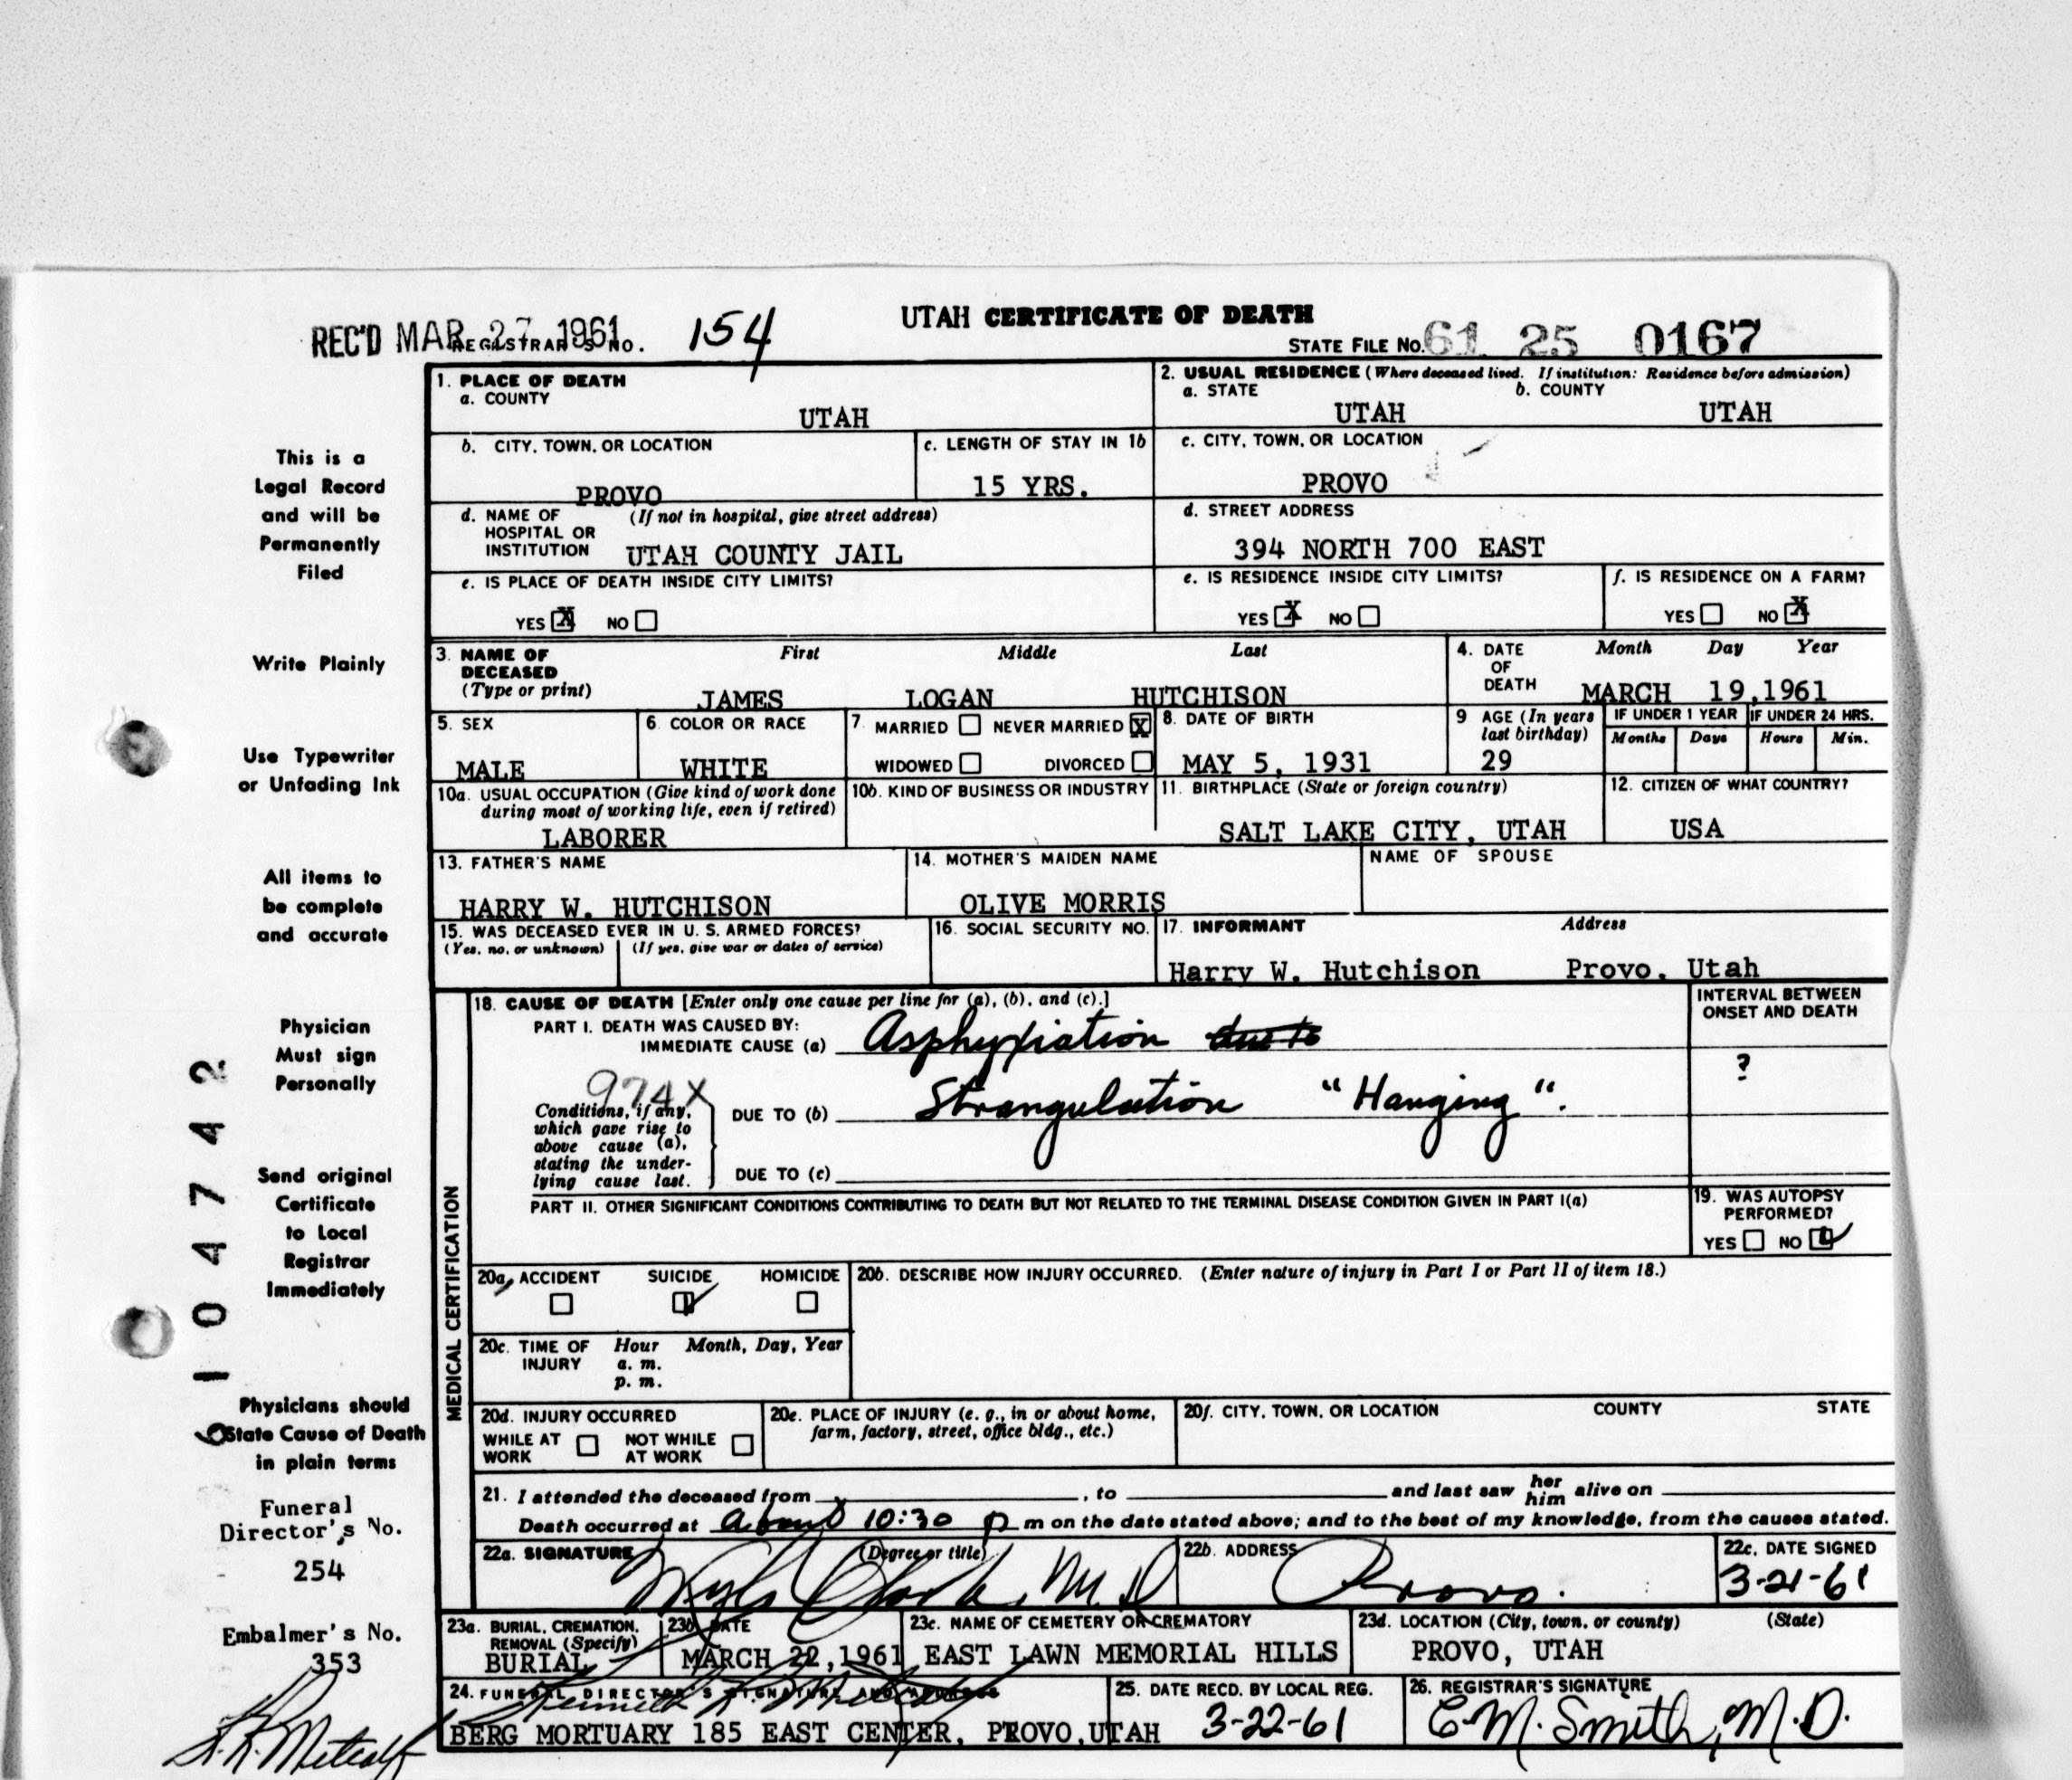 UTAH CERTIFICATE OF DEATH
REC'D MAR 27 1961 REGISTRAR'S NO. 154
STATE FILE NO. 61 25 0167
1. PLACE OF DEATH
a. COUNTY
UTAH
2. USUAL RESIDENCE (Where deceased lived. If institution: Residence before admission)
a. STATE b. COUNTY
UTAH UTAH
b. CITY, TOWN, OR LOCATION
PROVO
c. LENGTH OF STAY IN 1b
15 YRS.
c. CITY, TOWN, OR LOCATION
PROVO
d. NAME OF (If not in hospital, give street address)
HOSPITAL OR
INSTITUTION UTAH COUNTY JAIL
d. STREET ADDRESS
394 NORTH 700 EAST
e. IS PLACE OF DEATH INSIDE CITY LIMITS?
YES X NO
e. IS RESIDENCE INSIDE CITY LIMITS?
YES X NO
f. IS RESIDENCE ON A FARM?
YES NO X
3. NAME OF First Middle Last
DECEASED
(Type or print) JAMES LOGAN HUTCHISON
4. DATE Month Day Year
OF
DEATH MARCH 19,1961
5. SEX
MALE
6. COLOR OR RACE
WHITE
7. MARRIED NEVER MARRIED X
WIDOWED DIVORCED
8. DATE OF BIRTH
MAY 5, 1931
9 AGE (In years
last birthday)
29
IF UNDER 1 YEAR IF UNDER 24 HRS.
Months Days Hours Min.
10a. USUAL OCCUPATION (Give kind of work done
during most of working life, even if retired)
LABORER
10b. KIND OF BUSINESS OR INDUSTRY
11. BIRTHPLACE (State or foreign country)
SALT LAKE CITY, UTAH
12. CITIZEN OF WHAT COUNTRY?
USA
13. FATHER'S NAME
HARRY W. HUTCHISON
14. MOTHER'S MAIDEN NAME
OLIVE MORRIS
NAME OF SPOUSE
15. WAS DECEASED EVER IN U. S. ARMED FORCES?
(Yes, no, or unknown) (If yes, give war or dates of service)
16. SOCIAL SECURITY NO.
17. INFORMANT Address
Harry W. Hutchison Provo, Utah
MEDICAL CERTIFICATION
18. CAUSE OF DEATH [Enter only one cause per line for (a), (b), and (c).]
INTERVAL BETWEEN
ONSET AND DEATH
PART I. DEATH WAS CAUSED BY:
IMMEDIATE CAUSE (a) Asphyxiation due to
?
974X
Conditions, if any,
which gave rise to
above cause (a),
stating the under-
lying cause last.
DUE TO (b) Strangulation "Hanging".
DUE TO (c)
PART II. OTHER SIGNIFICANT CONDITIONS CONTRIBUTING TO DEATH BUT NOT RELATED TO THE TERMINAL DISEASE CONDITION GIVEN IN PART I(a)
19. WAS AUTOPSY
PERFORMED?
YES NO
20a. ACCIDENT SUICIDE HOMICIDE
20b. DESCRIBE HOW INJURY OCCURRED. (Enter nature of injury in Part I or Part II of item 18.)
20c. TIME OF Hour Month, Day, Year
INJURY a. m.
p. m.
20d. INJURY OCCURRED
WHILE AT NOT WHILE
WORK AT WORK
20e. PLACE OF INJURY (e. g., in or about home,
farm, factory, street, office bldg., etc.)
20f. CITY, TOWN, OR LOCATION COUNTY STATE
21. I attended the deceased from , to and last saw her him alive on
Death occurred at about 10:30 p m on the date stated above; and to the best of my knowledge, from the causes stated.
22a. SIGNATURE (Degree or title)
Clark, M.D
22b. ADDRESS
Provo.
22c. DATE SIGNED
3-21-61
23a. BURIAL, CREMATION,
REMOVAL (Specify)
BURIAL
23b. DATE
MARCH 22,1961
23c. NAME OF CEMETERY OR CREMATORY
EAST LAWN MEMORIAL HILLS
23d. LOCATION (City, town, or county) (State)
PROVO, UTAH
24. FUNERAL DIRECTOR'S SIGNATURE AND ADDRESS
BERG MORTUARY 185 EAST CENTER, PROVO,UTAH
25. DATE RECD. BY LOCAL REG.
3-22-61
26. REGISTRAR'S SIGNATURE
E.M. Smith, M.D.
This is a
Legal Record
and will be
Permanently
Filed
Write Plainly
Use Typewriter
or Unfading Ink
All items to
be complete
and accurate
Physician
Must sign
Personally
Send original
Certificate
to Local
Registrar
Immediately
Physicians should
State Cause of Death
in plain terms
Funeral
Director's No.
254
Embalmer's No.
353
Metcalf
104742